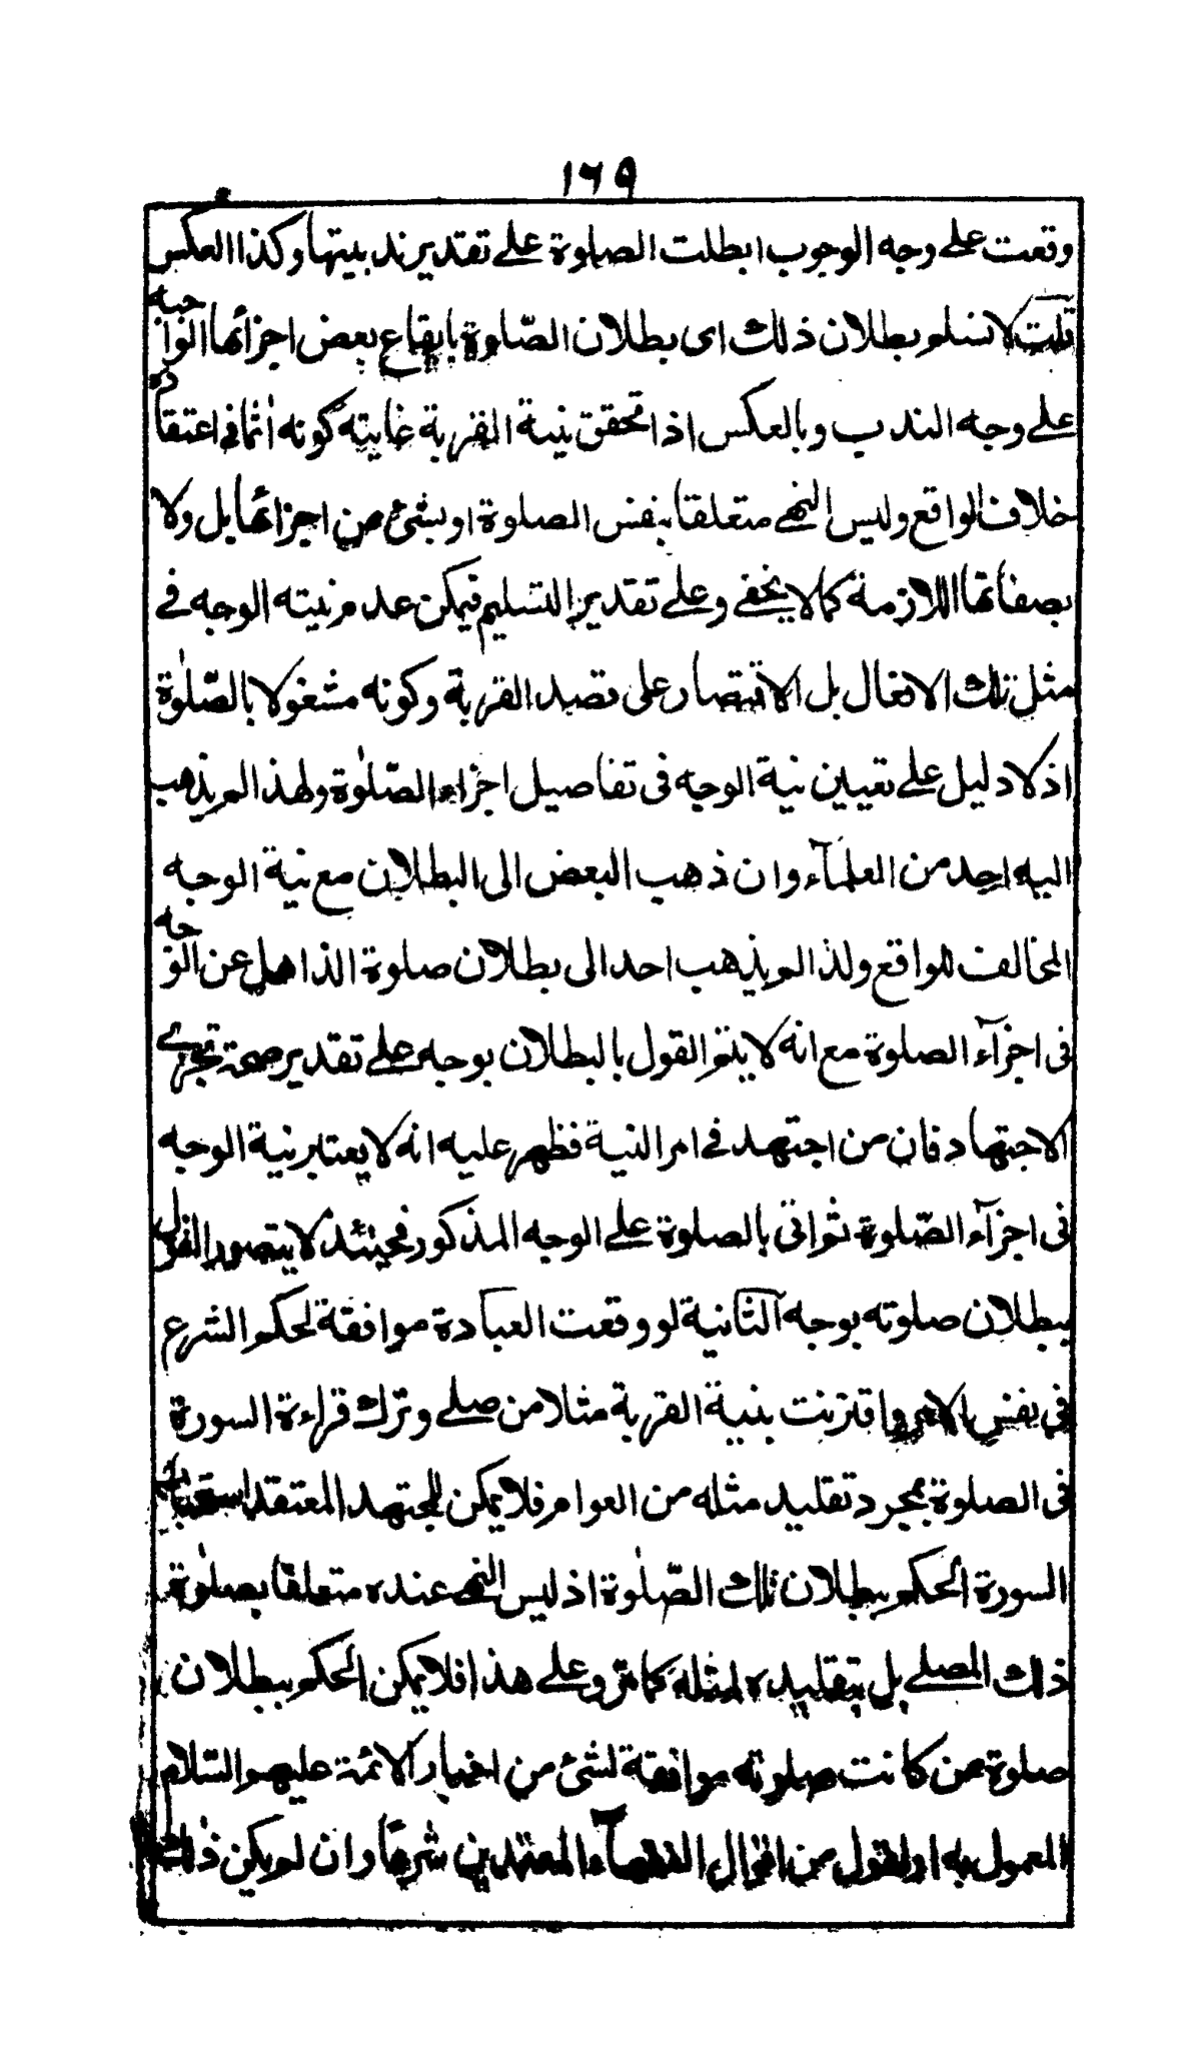 ١٦٩
وقعت على وجه الوجوب ابطلت الصلوة على تقدير ندبيتها وكذا العكس
قلت لا نسلم بطلان ذلك اى بطلان الصّلوة بايقاع بعض اجزائها الواجبه
على وجه الندب وبالعكس اذا تحقق نية القربة غايته كونه اثما فى اعتقاده
خلاف الواقع وليس النهى متعلقا بنفس الصلوة او بشئ من اجزائها بل ولا
بصفاتها اللازمة كما لا يخفى وعلى تقدير التسليم فيمكن عدم نيته الوجه فى
مثل تلك الافعال بل الاقتصار على قصد القربة وكونه مشغولا بالصّلوٰة
اذ لا دليل على تعيين نية الوجه فى تفاصيل اجزاء الصّلوٰة ولهذا لم يذهب
اليه احد من العلمآء وان ذهب البعض الى البطلان مع نية الوجه
المخالف للواقع ولذا لم يذهب احد الى بطلان صلوة الذاهل عن الوجه
فى اجزآء الصلوة مع انه لا يتم القول بالبطلان بوجه على تقدير صحة تجزى
الاجتهاد فان من اجتهد فى امر النية فظهر عليه انه لا يعتبر نية الوجه
فى اجزآء الصّلوة ثم اتى بالصلوة على الوجه المذكور فحينئذ لا يتصور القول
ببطلان صلوته بوجه الثانية لو وقعت العبادة موافقة لحكم الشرع
فى نفس الامر واقترنت بنية القربة مثلا من صلى وترك قراءة السورة
فى الصلوة بمجرد تقليد مثله من العوام فلا يمكن للمجتهد المعتقد استحباب
السورة الحكم ببطلان تلك الصّلوٰة اذ ليس النهى عنده متعلقا بصلوٰة
ذلك المصلى بل بتقليده لمثله كما مرّ وعلى هذا فلا يمكن الحكم ببطلان
صلوة من كانت صلوته موافقة لشئ من اخبار الائمة عليهم السّلام
المعمول به او لقول من اقوال الفقهآء المعتمدين شرعًا وان لم يكن ذلك